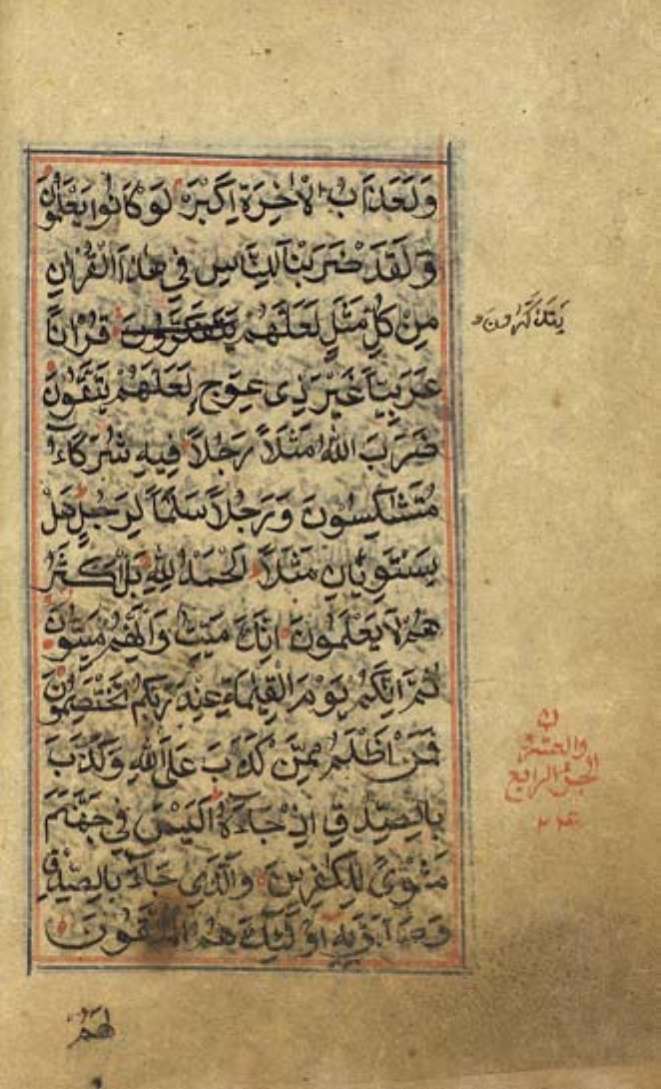 وَلَعَذَابُ الْاٰخِرَةِ اَكْبَرُ لَوْ كَانُوا يَعْلَمُونَ
وَلَقَدْ ضَرَبْنَا لِلنَّاسِ فِي هٰذَا الْقُرْاٰنِ
مِنْ كُلِّ مَثَلٍ لَعَلَّهُمْ يَتَفَكَّرُونَ قُرْاٰنًا
يَتَذَكَّرُونَ
عَرَبِيًّا غَيْرَ ذِي عِوَجٍ لَعَلَّهُمْ يَتَّقُونَ
ضَرَبَ اللهُ مَثَلًا رَجُلًا فِيهِ شُرَكَآءُ
مُتَشَاكِسُونَ وَرَجُلًا سَلَمًا لِرَجُلٍ هَلْ
يَسْتَوِيَانِ مَثَلًا الْحَمْدُ لِلّٰهِ بَلْ اَكْثَرُ
هُمْ لَا يَعْلَمُونَ اِنَّكَ مَيِّتٌ وَاِنَّهُمْ مَيِّتُونَ
ثُمَّ اِنَّكُمْ يَوْمَ الْقِيٰمَةِ عِنْدَ رَبِّكُمْ تَخْتَصِمُونَ
فَمَنْ اَظْلَمُ مِمَّنْ كَذَبَ عَلَى اللهِ وَكَذَّبَ
بِالصِّدْقِ اِذْ جَآءَهُ اَلَيْسَ فِي جَهَنَّمَ
مَثْوًى لِلْكٰفِرِينَ وَالَّذِي جَآءَ بِالصِّدْقِ
وَصَدَّقَ بِهِ اُولٰٓئِكَ هُمُ الْمُتَّقُونَ
الجزء الرابع
والعشرون
٢٤
لَهُمْ